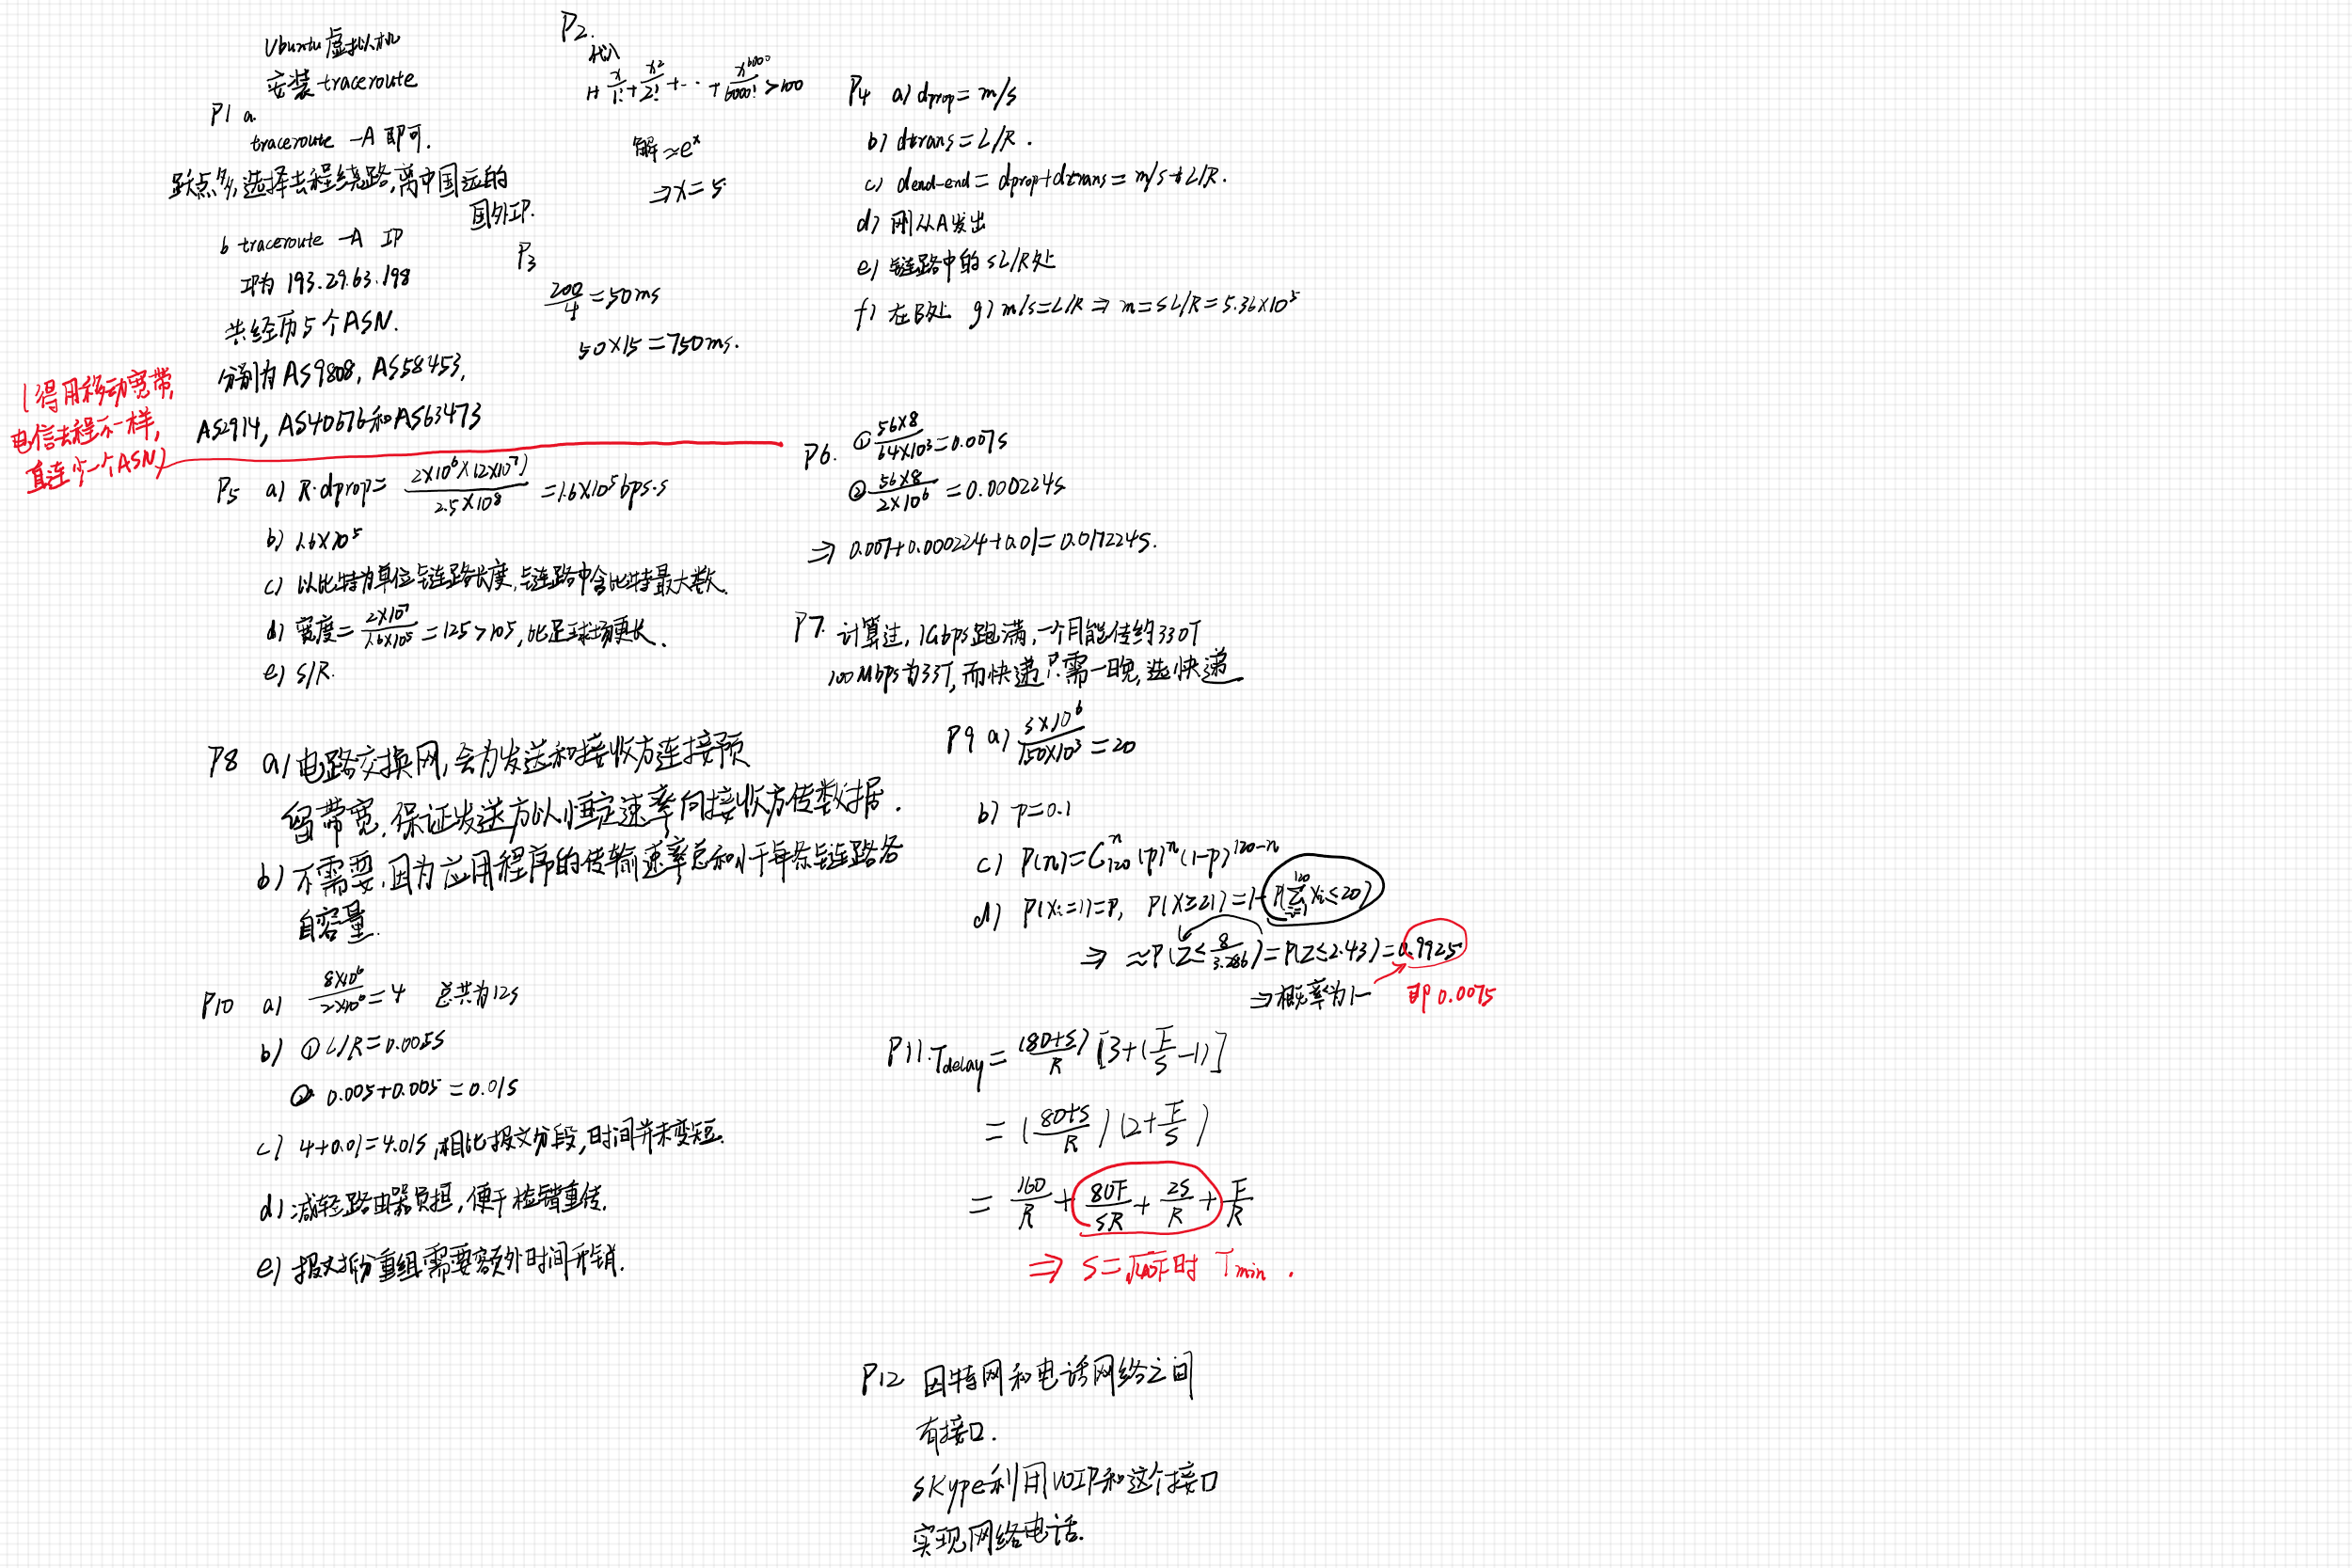 Ubuntu虚拟机
安装traceroute
P1 a.
traceroute -A 即可.
跃点多,选择去程绕路,离中国远的
国外IP.
b traceroute -A IP
IP为 193.29.63.198
共经历5个ASN.
分别为AS9808, AS58453,
AS2914, AS40676和AS63473
(得用移动宽带,
电信去程不一样,
直连少一个ASN)
P2.
代入
1+x/1!+x²/2!+…+x^6000/6000!>100
解≈e^x
⇒x=5
P3
200/4=50ms
50×15=750ms.
P4 a) dprop=m/s
b) dtrans=L/R.
c) dend-end=dprop+dtrans=m/s+L/R.
d) 刚从A发出
e) 链路中的sL/R处
f) 在B处 g) m/s=L/R⇒m=sL/R=5.36×10^5
P5 a) R·dprop=2×10^6×(2×10^7)/2.5×10^8=1.6×10^5bps·s
b) 1.6×10^5
c) 以比特为单位链路长度,链路中含比特最大数.
d) 宽度=2×10^7/1.6×10^5=125>105,比足球场更长.
e) S/R.
P6. ①56×8/64×10^3=0.007s
②56×8/2×10^6=0.000224s
⇒0.007+0.000224+0.01=0.017224s.
P7. 计算过,1Gbps跑满,一个月能传约330T
100Mbps为33T,而快递只需一晚,选快递
P8 a) 电路交换网,会为发送和接收方连接预
留带宽.保证发送方以恒定速率向接收方传数据.
b) 不需要.因为应用程序的传输速率总和小于每条链路各
自容量.
P9 a) 3×10^6/150×10^3=20
b) p=0.1
c) P(n)=C_120^n (p)^n(1-p)^120-n
d) P(Xi=1)=P, P(X≥21)=1-P(∑_{i=1}^{120}Xi≤20)
⇒≈P(Z≤8/3.286)=P(Z≤2.43)=0.9925
⇒概率为1-
即0.0075
P10 a) 8×10^6/2×10^6=4 总共为12s
b) ①L/R=0.005s
② 0.005+0.005=0.01s
c) 4+0.01=4.01s,相比报文分段,时间并未变短.
d) 减轻路由器负担,便于检错重传.
e) 报文拆分重组需要额外时间开销.
P11. Tdelay=(80+S)/R[3+(F/S-1)]
=(80+S/R)(2+F/S)
=160/R+80F/SR+2S/R+F/R
⇒S=√40F时 Tmin.
P12 因特网和电话网络之间
有接口.
skype利用VOIP和这个接口
实现网络电话.